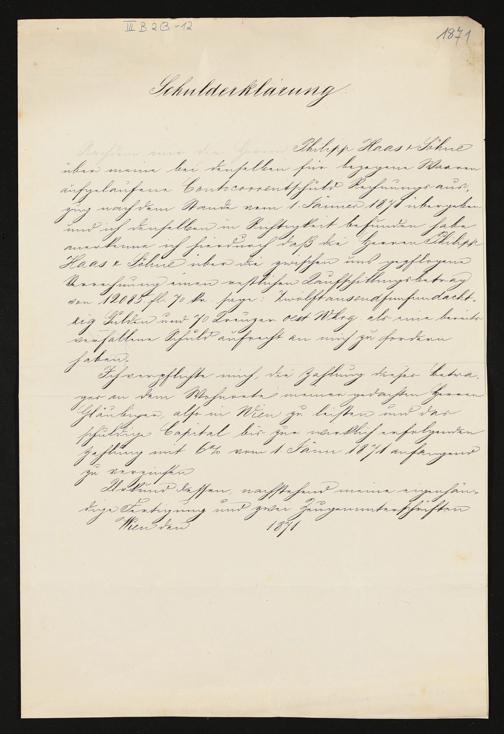 III B 2 B - 12
1871
Schulderklärung.
Nachdem mir die Herren Philipp Haas & Söhne
über meine bei denselben für bezogene Waaren
aufgelaufene Contocorrentschuld Rechnungsaus-
zug nach dem Stande vom 1. Jänner 1871 übergeben
und ich denselben in Richtigkeit befunden habe
anerkenne ich hierdurch daß die Herren Philipp
Haas & Söhne über die zwischen uns gepflogene
Verrechnung einen restlichen Kaufschillingsbetrag
von 12085 fl 70 kr sage: zwölftausendfünfundacht-
zig Gulden und 70 Kreuzer öst Whrg als eine bereits
verfallene Schuld aufrecht an mich zu fordern
haben.
Ich verpflichte mich, die Zahlung dieses Betra-
ges an dem Wohnorte meiner gedachten Herren
Gläubiger, also in Wien zu leisten und das
schuldige Capital bis zur wirklich erfolgenden
Zahlung mit 6% vom 1 Jänn 1871 anfangend
zu verzinsen
Urkund dessen, nachstehend meine eigenhän-
dige Fertigung und zwei Zeugenunterschriften
Wien den 1871